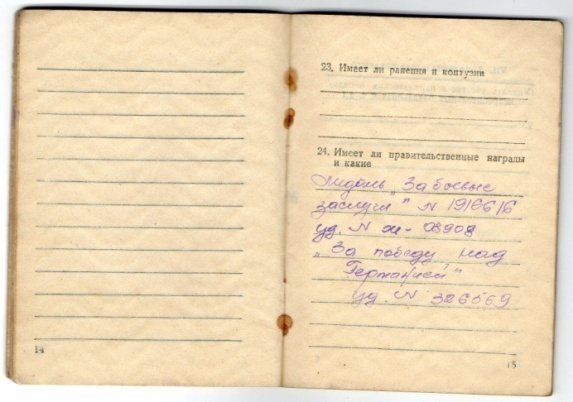 23. Имеет ли ранения и контузии
24. Имеет ли правительственные награды
и какие
Медаль „За боевые
заслуги" N 1916616
уд. N
„За победу над
Германией"
уд. N 326569
14
15